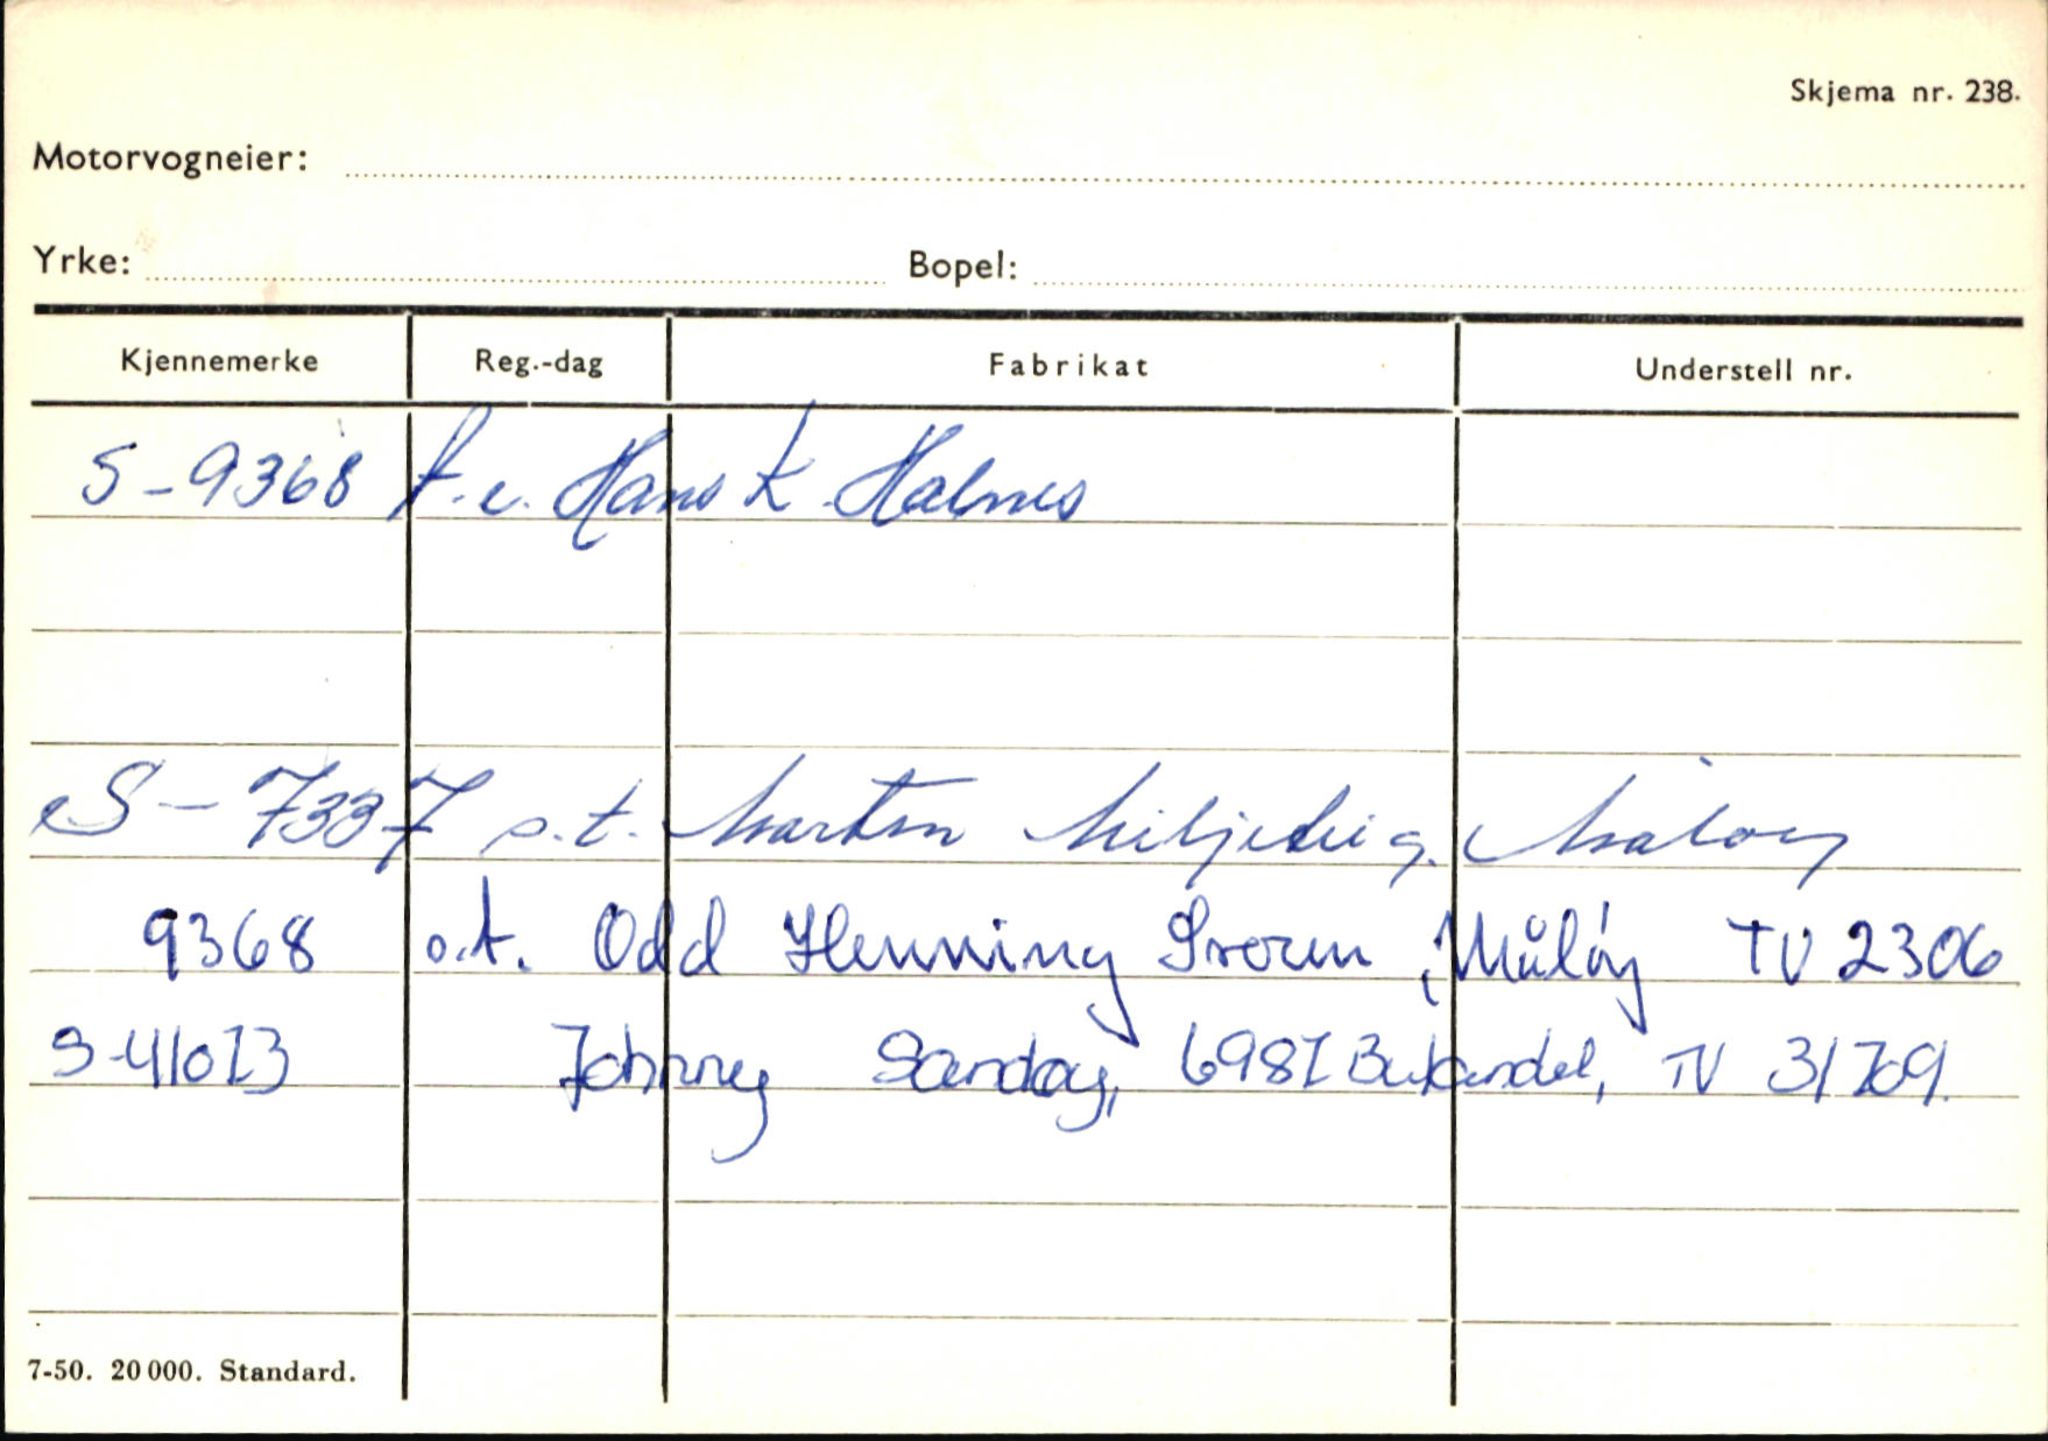 Skjema nr. 238.
Motorvogneier:
Yrke: Bopel:
Kjennemerke Reg.-dag Fabrikat Understell nr.
S-9368 f.e. Hans K. Halnes
S-7337 o.t. Marton Måløy
9368 o.t. Odd Henning Svoren, Måløy TV 2306
S-41013 Johnny Sandøy, 6987 Bulandet, TV 31709.
7-50. 20 000. Standard.